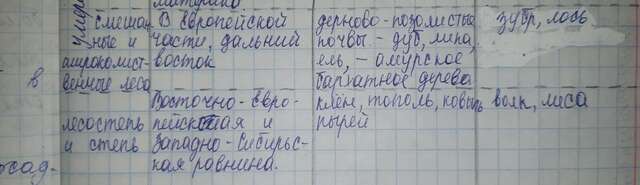 материка
смешан- В Европейской дерново-подзолистые зубр, лось
ные и части, дальний почвы - дуб, липа,
широколист- восток ель, - амурское
венные леса бархатное дерево
Восточно-Евро- клён, тополь, ковыль волк, лиса
лесостепь пейская и пырей
и степь Западно-Сибирс-
кая равнина.
в